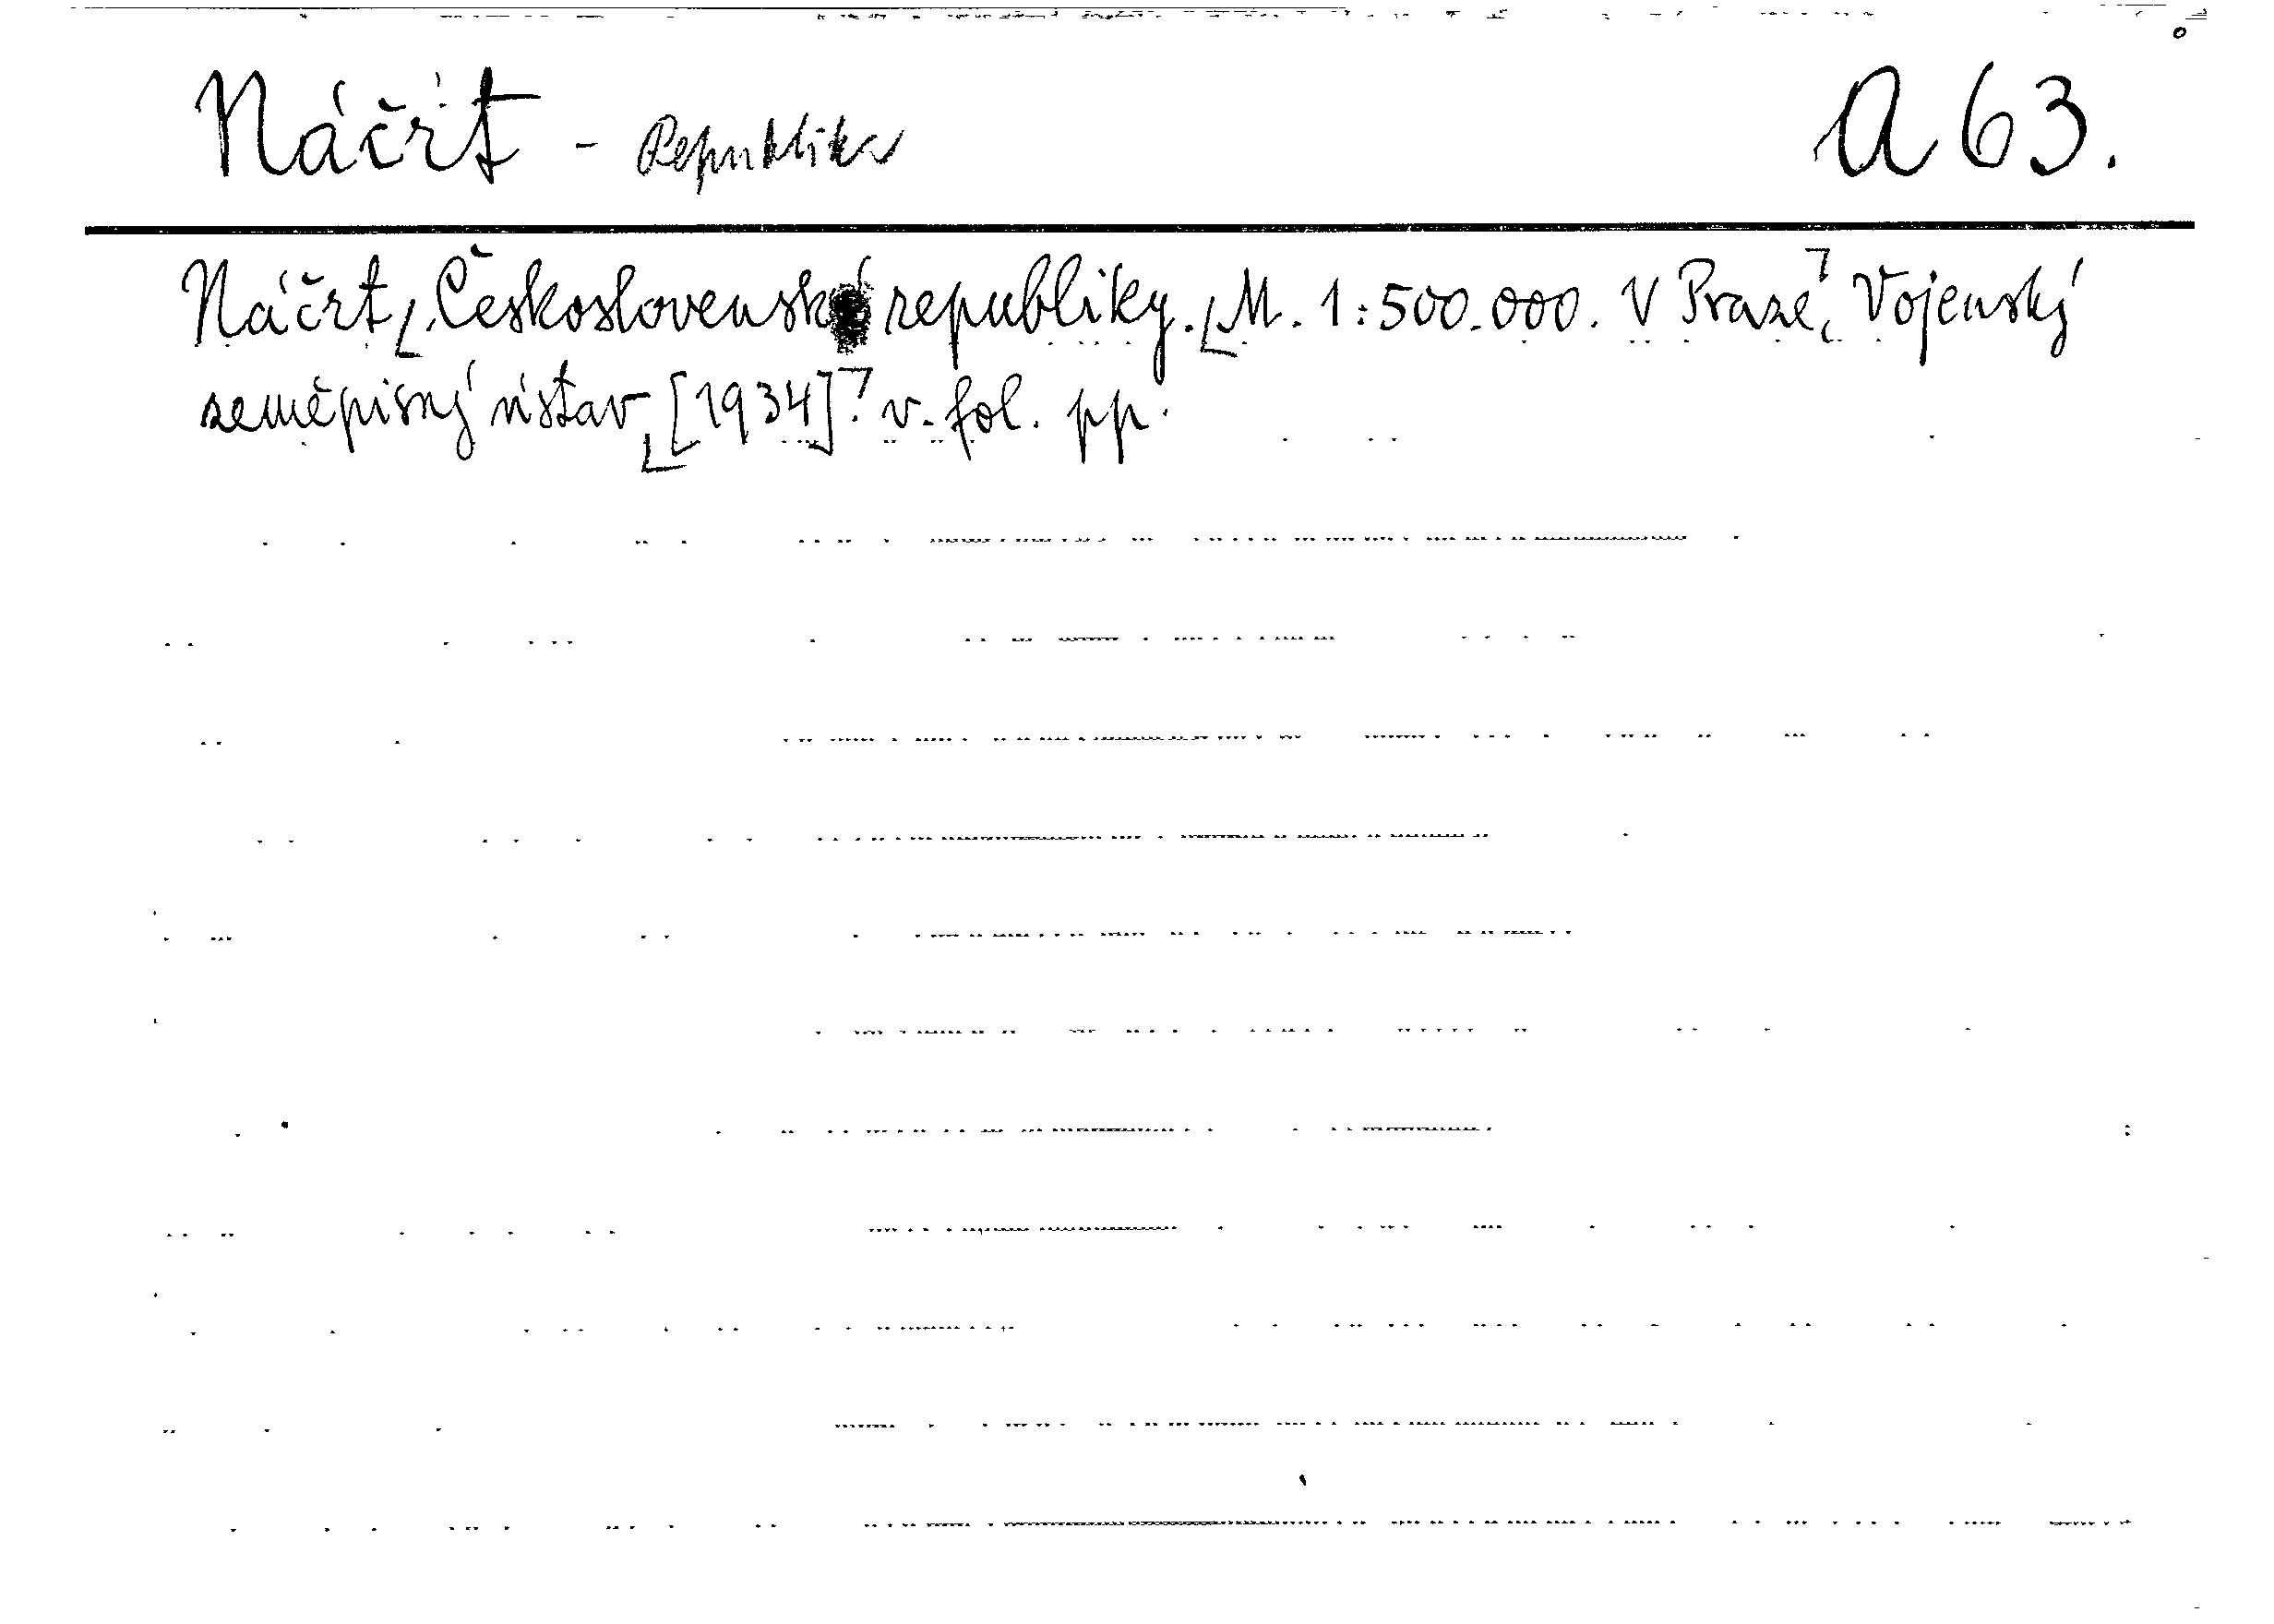 Náčrt - Republika A 63.
Náčrt Československé republiky. M. 1:500.000. V Praze, Vojenský
zeměpisný ústav, [1934]. v. fol. pp.